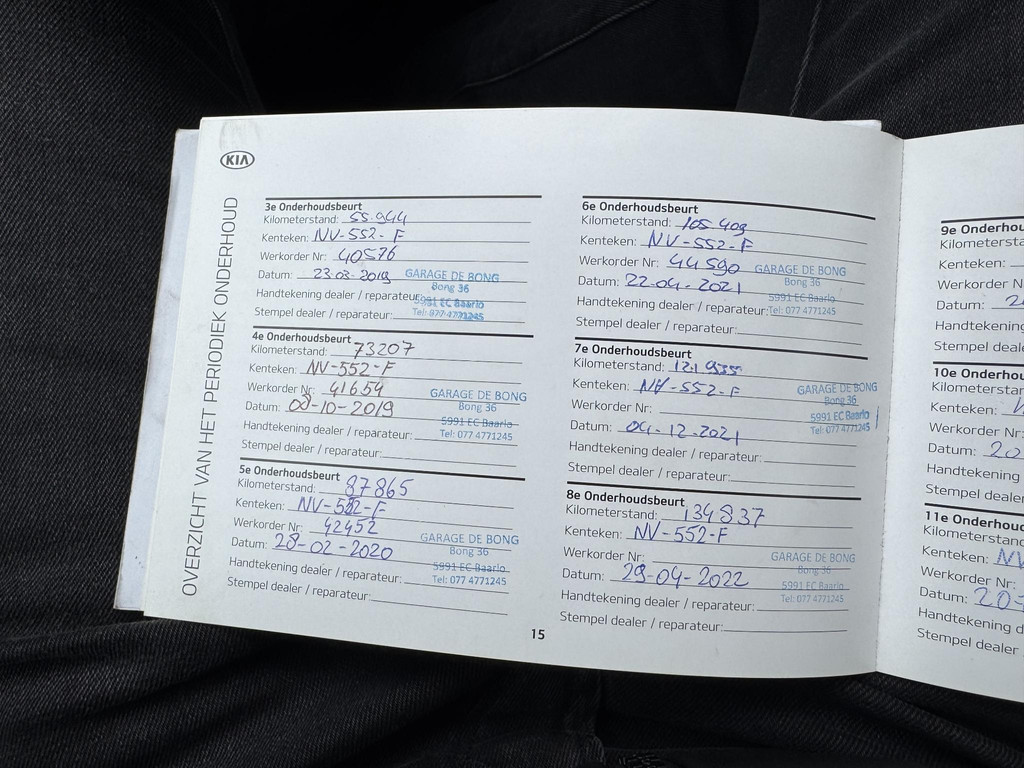 KIA
OVERZICHT VAN HET PERIODIEK ONDERHOUD
3e Onderhoudsbeurt
Kilometerstand: 55.944
Kenteken: NV-552-F
Werkorder Nr: 40576
Datum: 23-03-2019
GARAGE DE BONG
Bong 36
Handtekening dealer / reparateur:
5991 EC Baarlo
Tel: 077 4771245
Stempel dealer / reparateur:
4e Onderhoudsbeurt
Kilometerstand: 73207
Kenteken: NV-552-F
Werkorder Nr: 41654
Datum: 08-10-2019
GARAGE DE BONG
Bong 36
5991 EC Baarlo
Tel: 077 4771245
Handtekening dealer / reparateur:
Stempel dealer / reparateur:
5e Onderhoudsbeurt
Kilometerstand: 87865
Kenteken: NV-552-F
Werkorder Nr: 42452
Datum: 28-02-2020
GARAGE DE BONG
Bong 36
5991 EC Baarlo
Tel: 077 4771245
Handtekening dealer / reparateur:
Stempel dealer / reparateur:
15
6e Onderhoudsbeurt
Kilometerstand: 105 409
Kenteken: NV-552-F
Werkorder Nr: 44590
Datum: 22-04-2021
GARAGE DE BONG
Bong 36
5991 EC Baarlo
Tel: 077 4771245
Handtekening dealer / reparateur:
Stempel dealer / reparateur:
7e Onderhoudsbeurt
Kilometerstand: 121.935
Kenteken: NV-552-F
Werkorder Nr:
Datum: 04-12-2021
GARAGE DE BONG
Bong 36
5991 EC Baarlo
Tel: 077 4771245
Handtekening dealer / reparateur:
Stempel dealer / reparateur:
8e Onderhoudsbeurt
Kilometerstand: 134837
Kenteken: NV-552-F
Werkorder Nr:
Datum: 29-04-2022
GARAGE DE BONG
Bong 36
5991 EC Baarlo
Tel: 077 4771245
Handtekening dealer / reparateur:
Stempel dealer / reparateur:
9e Onderhou
Kilometersta
Kenteken:
Werkorder N
Datum: 2
Handtekening
Stempel deale
10e Onderhou
Kilometerstan
Kenteken:
Werkorder Nr:
Datum: 20
Handtekening
Stempel dealer
11e Onderhoud
Kilometerstand
Kenteken: NV
Werkorder Nr:
Datum: 20-
Handtekening d
Stempel dealer